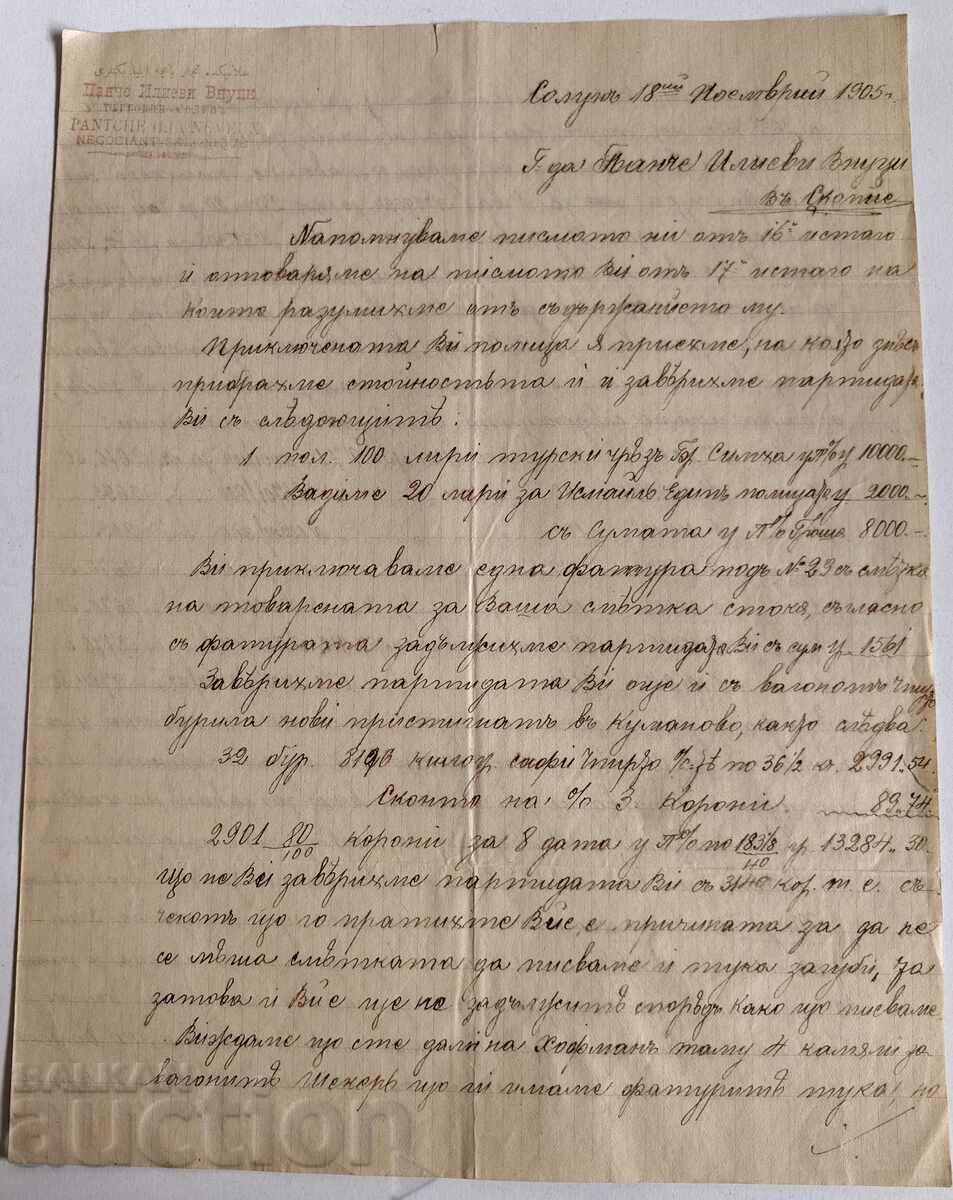 Панчо Илиеви Внуци
NEGOCIANT
Солунъ 18ий Ноемврий 1905
Г-да Панче Илиеви Внуци
въ Скопие
Напомнуваме писмото ни отъ 16. истаго
и отговаряме на писмото Ви отъ 17. истаго на
което разумихме отъ съдържанието му.
Приключената Ви полица я приехме, на която
прибрахме стойностьта и и завѣрихме партидата
Ви съ слѣдующитѣ:
1 пол. 100 лири турски чрѣзъ Симха 10000.–
Вадиме 20 лири за Исмаилъ Единъ полица 2000.–
съ сумата у 8000.–
Ви приключаваме една фатура подъ № 23 съ смѣтка
на товарената за Ваша смѣтка стока, съгласно
съ фатурата задължихме партидата Ви съ 1561
Завѣрихме партидата Ви още и съ вагонотъ
бурила нови пристигнатъ въ Куманово, како слѣдва:
32 бур. по 36 1/2 к. 2991.54
Сконто на % 3. Корони 89.74
2901 80/100 Корони за 8 дата у по 13284.30
що не Ви завѣрихме партидата Ви съ кор. т. е. съ
чекотъ що го пратихте Вие, е причината за да не
се мѣша смѣтката да писваме и тука загуби, за
затова и Вие ще не задължитѣ спорѣдъ како що писваме
Виждаме що сте дали на Хофманъ тому 4 за
вагонитѣ шекеръ що ги имаме фатуритѣ тука, но
BALKAN
auction